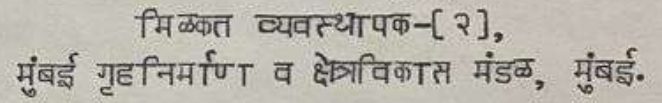 मिळकत व्यवस्थापक-[२],
मुंबई गृहनिर्माण व क्षेत्रविकास मंडळ, मुंबई.